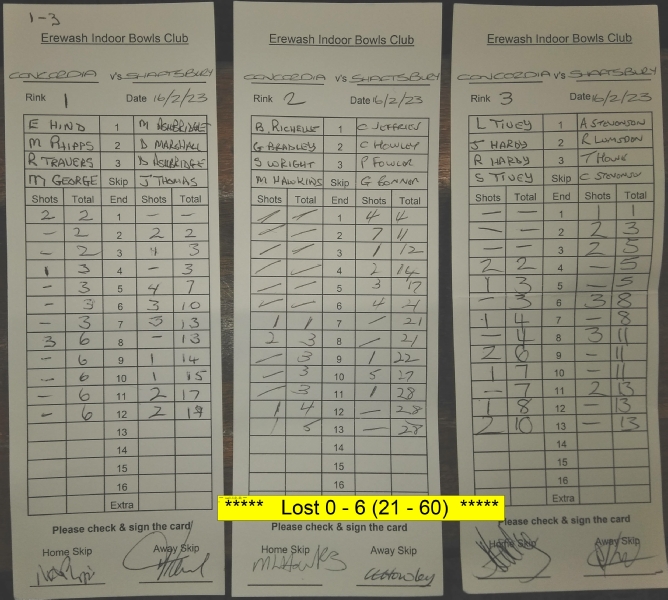 1-3
Erewash Indoor Bowls Club
CONCORDIA v's SHAFTSBURY
Rink 1 Date 16/2/23
E HIND 1 M ASHBRIDGE
M PHIPPS 2 D MARSHALL
R TRAVERS 3 D ASHBRIDGE
M GEORGE Skip J THOMAS
Shots Total End Shots Total
2 2 1 - -
- 2 2 2 2
- 2 3 1 3
1 3 4 - 3
- 3 5 4 7
- 3 6 3 10
- 3 7 3 13
3 6 8 - 13
- 6 9 1 14
- 6 10 1 15
- 6 11 2 17
- 6 12 2 19
13
14
15
16
Extra
Please check & sign the card
Home Skip Away Skip
Erewash Indoor Bowls Club
CONCORDIA v's SHAFTSBURY
Rink 2 Date 16/2/23
B. RICHELLE 1 C JEFFRIES
G BRADLEY 2 C HOWLEY
S WRIGHT 3 P FOWLOR
M HAWKINS Skip G BONNOR
Shots Total End Shots Total
/ / 1 4 4
/ / 2 7 11
/ / 3 1 12
/ / 4 2 14
/ / 5 3 17
/ / 6 4 21
1 1 7 / 21
2 3 8 / 21
/ 3 9 1 22
/ 3 10 5 27
/ 3 11 1 28
1 4 12 - 28
1 5 13 - 28
14
15
16
***** Lost 0 - 6 (21 - 60) *****
Please check & sign the card
Home Skip Away Skip
Erewash Indoor Bowls Club
CONCORDIA v's SHAFTSBURY
Rink 3 Date 16/2/23
L TIVEY 1 A STEVONSON
J HARDY 2 R LUMSDON
R HARDY 3 T HOWE
S TIVEY Skip C STEVONSON
Shots Total End Shots Total
- - 1 1 1
- - 2 2 3
- - 3 2 5
2 2 4 - 5
1 3 5 - 5
- 3 6 3 8
1 4 7 - 8
- 4 8 3 11
2 6 9 - 11
1 7 10 - 11
- 7 11 2 13
1 8 12 - 13
2 10 13 - 13
14
15
16
Extra
Please check & sign the card
Home Skip Away Skip